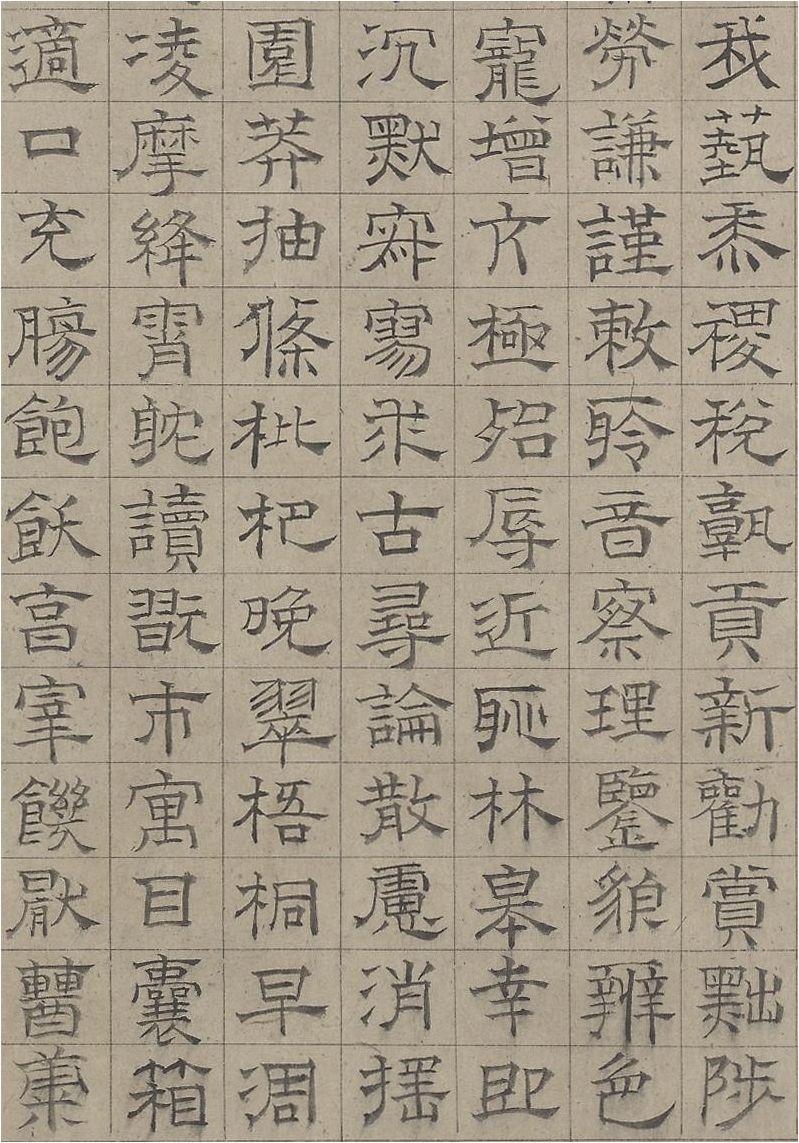 我蓺黍稷税孰貢新勸賞黜陟
勞謙謹敕聆音察理鑒貌辨色
寵增亢極殆辱近耻林皋幸即
沉默寂寥求古尋論散慮消搖
園莽抽條枇杷晚翠梧桐早凋
凌摩絳霄耽讀翫市寓目囊箱
適口充膓飽飫亯宰饑猒糟康